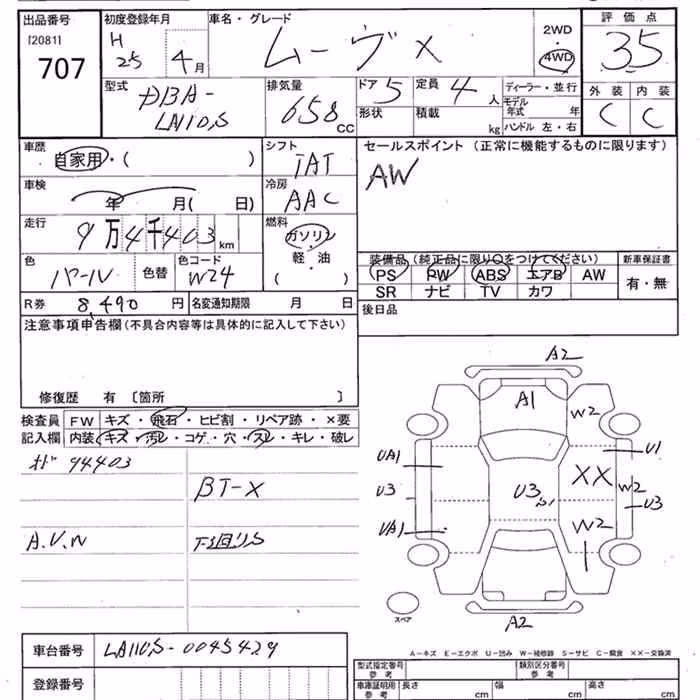 出品番号 初度登録年月 車名・グレード 2WD 評価点
[20811] H 25 4月 ムーヴ X 4WD 35
707
型式 排気量 ドア 5 定員 4人 ディーラー・並行 外装 内装
DBA- 658 CC 形状 積載 kg モデル年式 年 C C
LA110S ハンドル 左・右
車歴 シフト セールスポイント (正常に機能するものに限ります)
自家用・( ) IAT AW
車検 冷房
年 月( 日) AAC
走行 燃料
9万4千403km ガソリン・軽・油( )
装備品 (純正品に限り○をつけてください) 新車保証書
色 パール 色替 色コード W24
PS PW ABS エアB AW 有・無
SR ナビ TV カワ
R券 8,490円 名変通知期限 月 日
後日品
注意事項申告欄 (不具合内容等は具体的に記入して下さい)
修復歴 有 〔箇所 〕
検査員 FW キズ・飛石・ヒビ割・リペア跡・×要
記入欄 内装 キズ・汚れ・コゲ・穴・スレ・キレ・破レ
94403
BT-X
A.V.N 下回りS
A2
A1 W2
UA1 U1
XX
U3 U3 S1 W2
U3
UA1 W2
スペア
A2
A-キズ E-エクボ U-凹み W-補修跡 S-サビ C-腐食 ××-交換済
車台番号 LA110S-0045429
登録番号
型式指定番号 参考 類別区分番号 参考
車庫証明用 参考 長さ cm 幅 cm 高さ cm